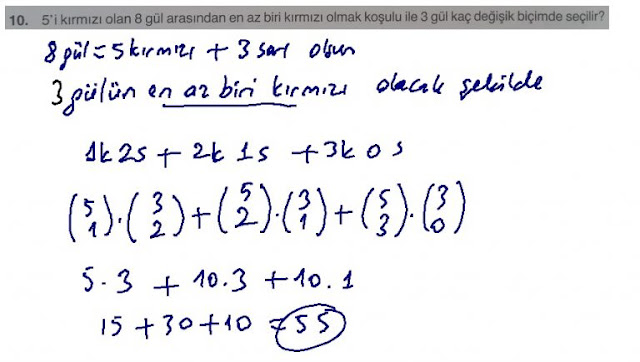 10. 5'i kırmızı olan 8 gül arasından en az biri kırmızı olmak koşulu ile 3 gül kaç değişik biçimde seçilir?
8 gül = 5 kırmızı + 3 sarı olsun
3 gülün en az biri kırmızı olacak şekilde
1k 2s + 2k 1s + 3k 0 s
(5 1)·(3 2)+(5 2)·(3 1)+(5 3)·(3 0)
5·3 + 10·3 + 10·1
15 + 30 + 10 = 55